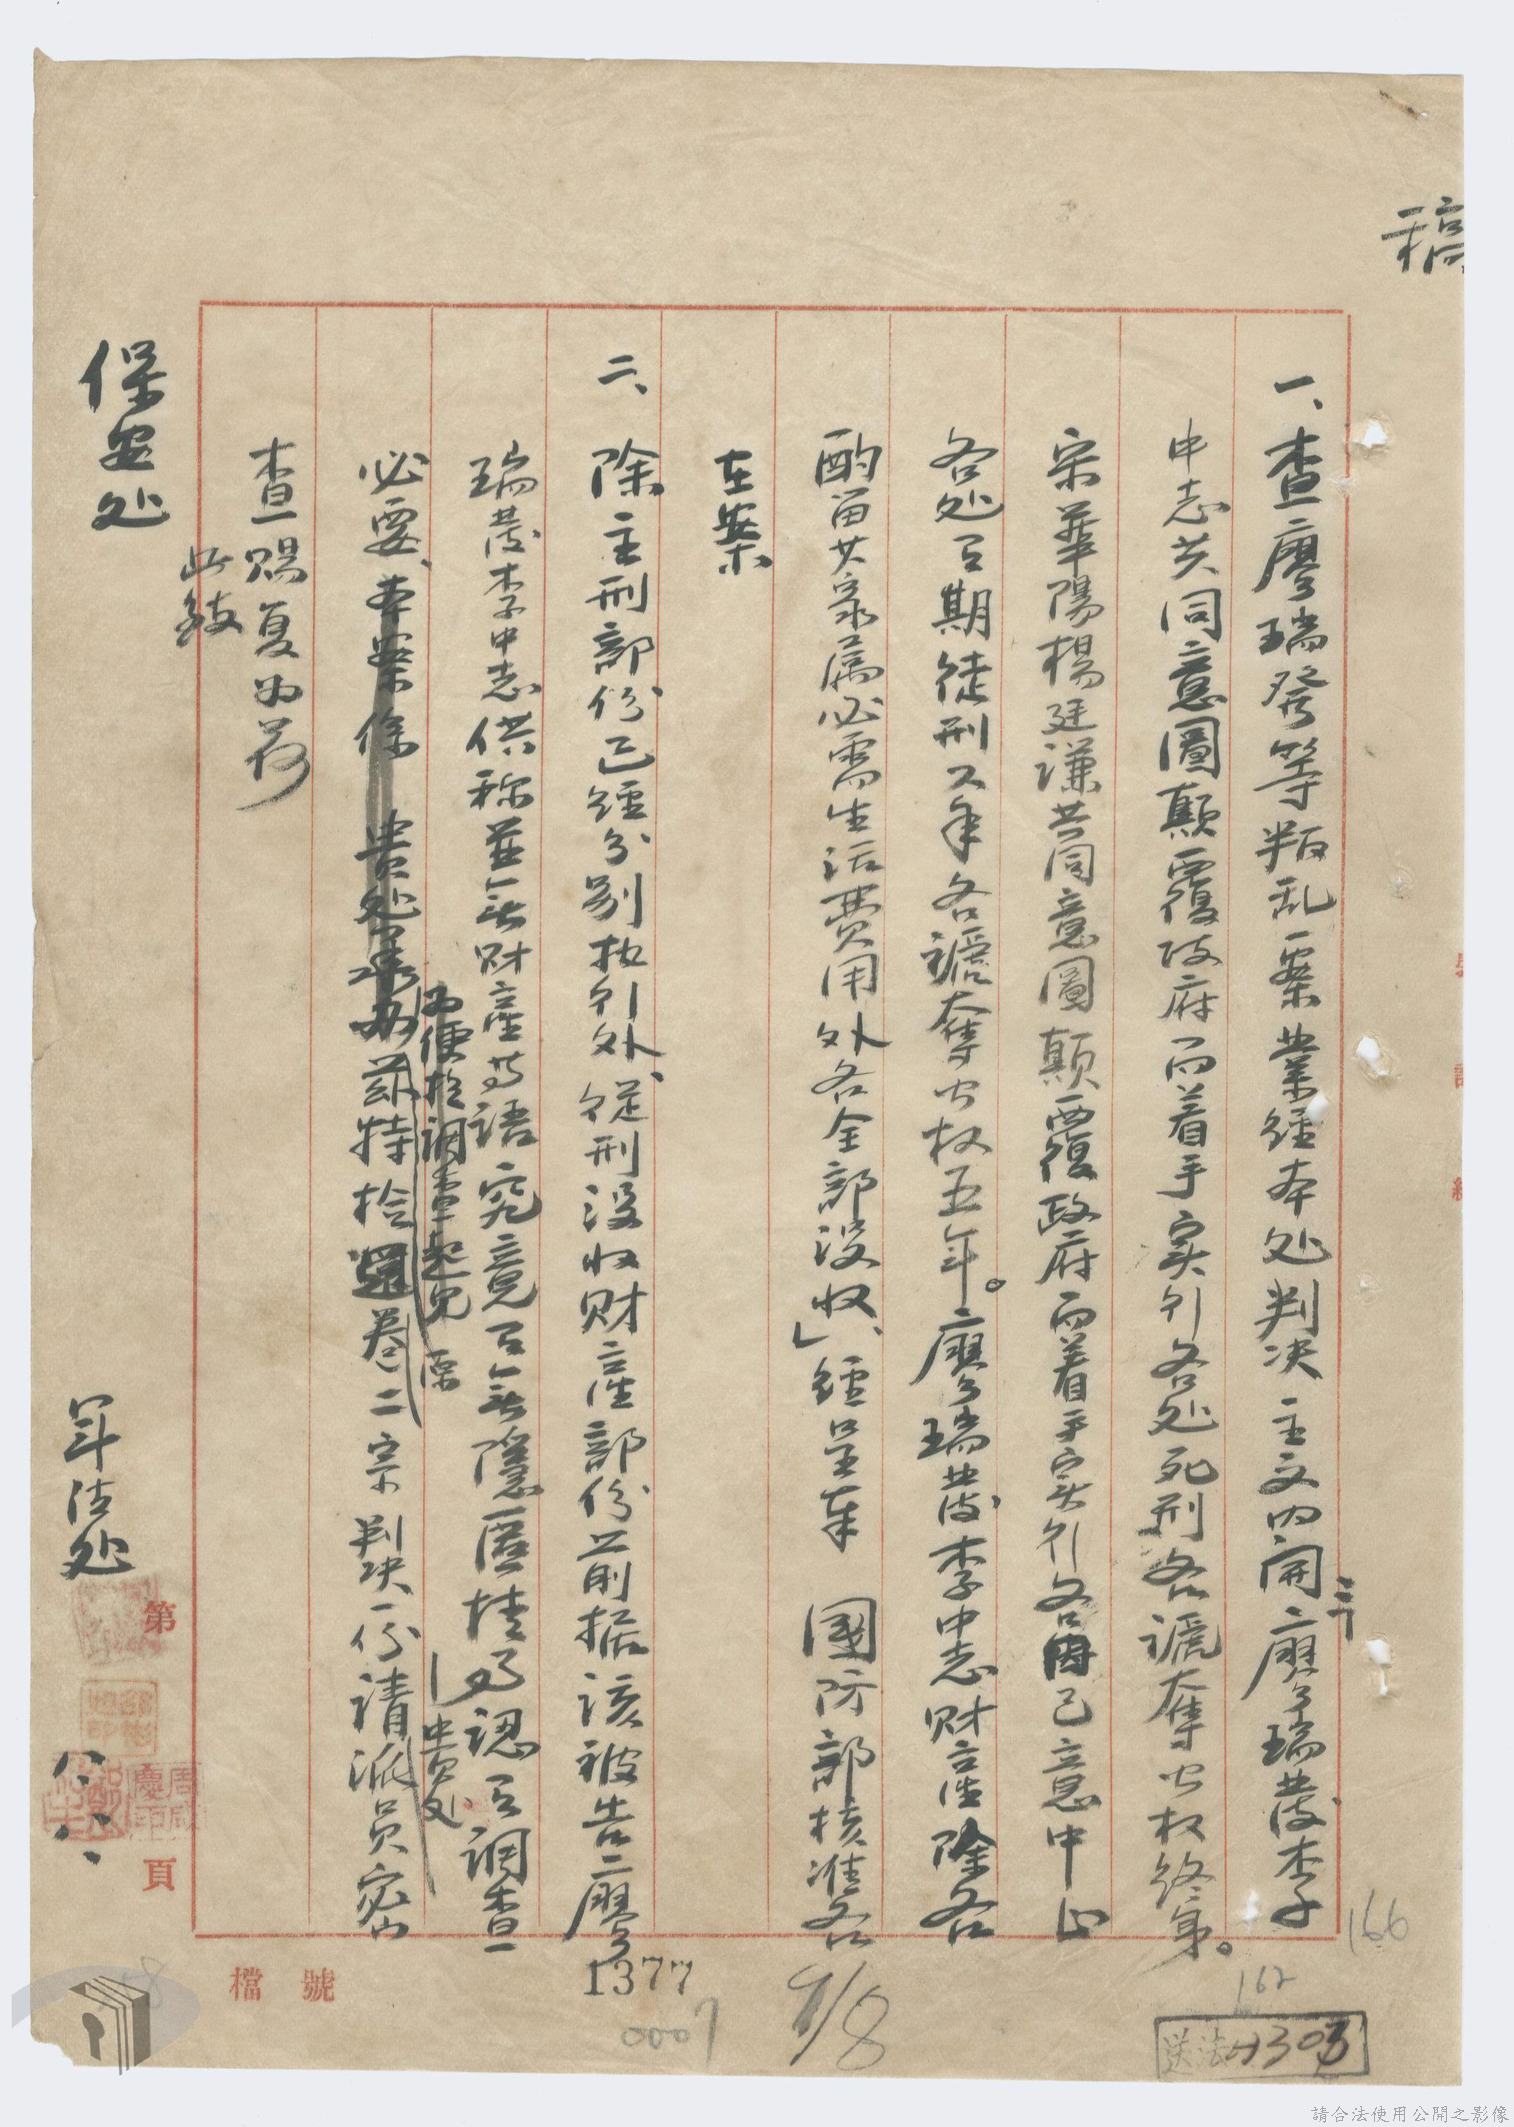 稿
一、查廖瑞發等判乱一案業經本处判决主文内開「廖瑞發李
中志共同意圖顛覆政府而着手实行各处死刑各褫奪公权終身。
宋華陽楊廷謙共同意圖顛覆政府而着手实行各因己意中止
各处有期徒刑久年各褫奪公权五年。廖瑞發李中志財產除各
酌留其家属必需生活費用外各全部没收」、經呈奉 國防部核准各
在案
二、除主刑部份已經分別执行外、從刑没收財產部份前据该被告廖
瑞發李中志供称並無財產等語究竟有無隱匿情形認有調查
必要、本案係 貴处承办茲特檢還卷二宗判决一份请派員密
為便於調查起見 原
貴处
查賜复为荷
此致
保安处
軍法处
第 頁
檔 號
1377
0007
9/8
166
162
送法
請合法使用公開之影像